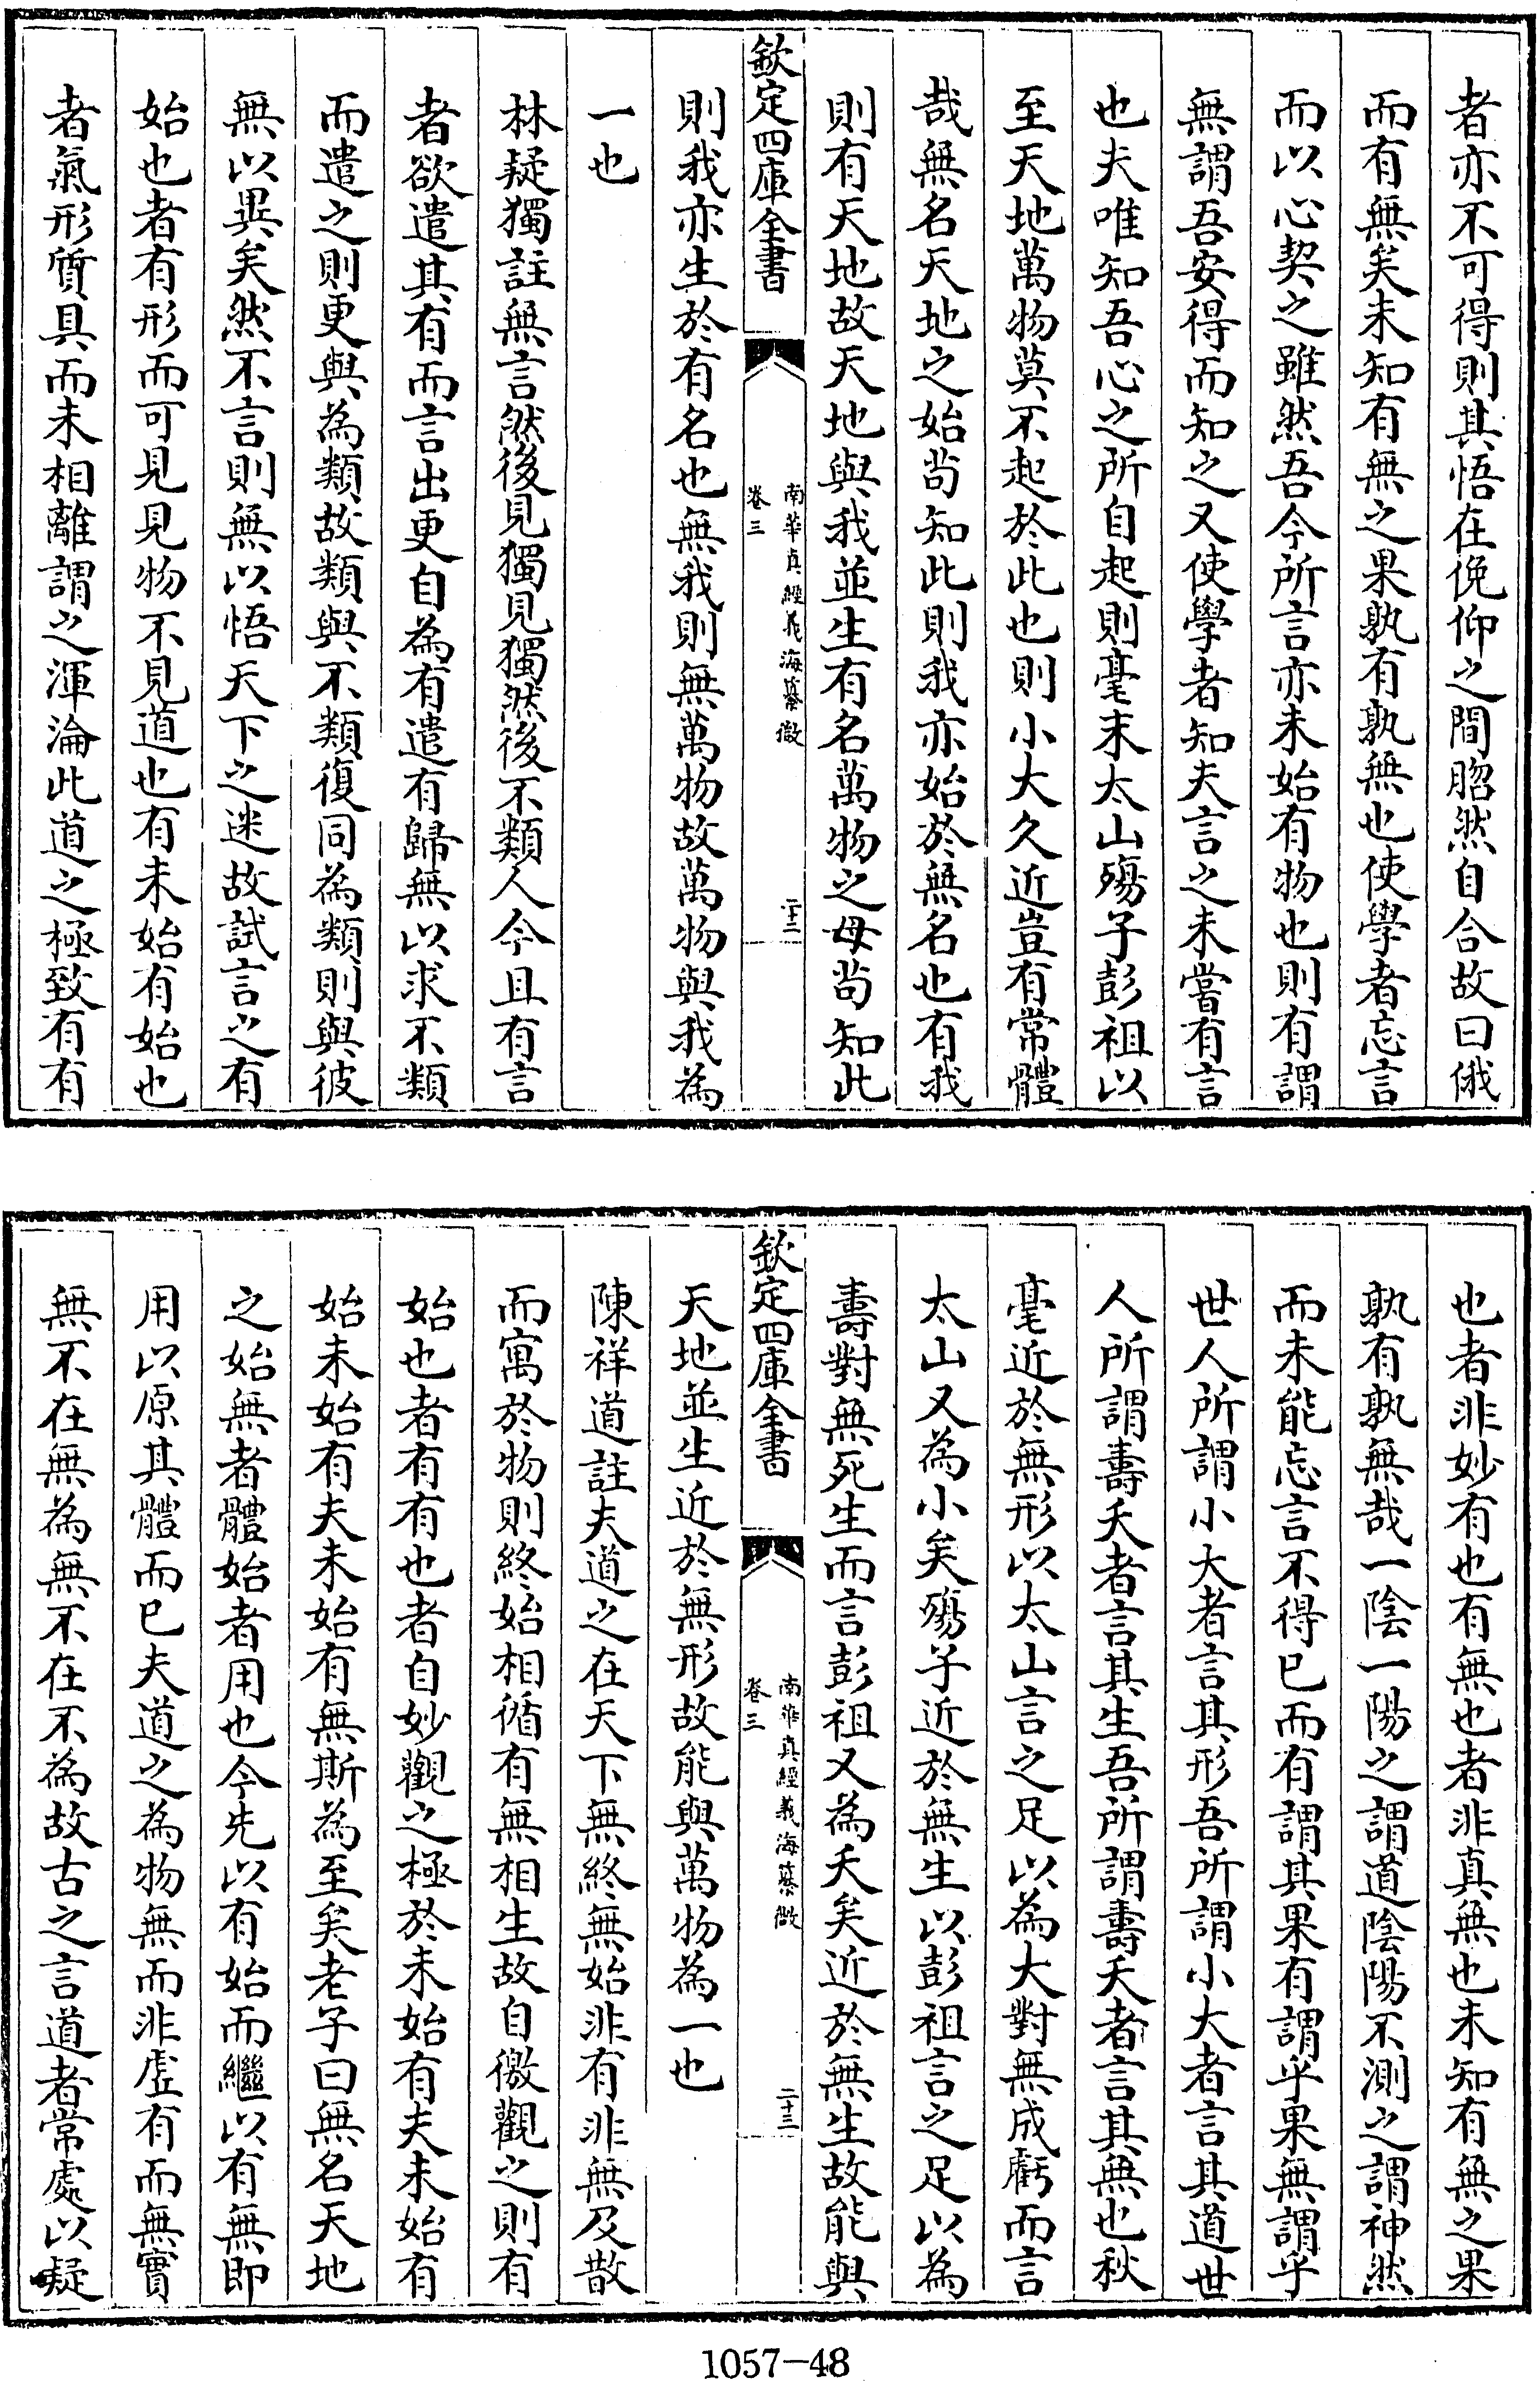 者亦不可得則其悟在俛仰之間䀢然自合故曰俄
而有無矣未知有無之果孰有孰無也使學者忘言
而以心契之雖然吾今所言亦未始有物也則有謂
無謂吾安得而知之又使學者知夫言之未嘗有言
也夫唯知吾心之所自起則毫末太山殤子彭祖以
至天地萬物莫不起於此也則小大久近豈有常體
哉無名天地之始茍知此則我亦始於無名也有我
則有天地故天地與我並生有名萬物之母茍知此
欽定四庫全書
南華真經義海纂微
卷三
二十二
則我亦生於有名也無我則無萬物故萬物與我為
一也
林疑獨註無言然後見獨見獨然後不類人今且有言
者欲遣其有而言出更自為有遣有歸無以求不類
而遣之則更與為類故類與不類復同為類則與彼
無以異矣然不言則無以悟天下之迷故試言之有
始也者有形而可見見物不見道也有未始有始也
者氣形質具而未相離謂之渾淪此道之極致有有
也者非妙有也有無也者非真無也未知有無之果
孰有孰無哉一陰一陽之謂道陰陽不測之謂神然
而未能忘言不得已而有謂其果有謂乎果無謂乎
世人所謂小大者言其形吾所謂小大者言其道世
人所謂壽夭者言其生吾所謂壽夭者言其無也秋
毫近於無形以太山言之足以為大對無成虧而言
太山又為小矣殤子近於無生以彭祖言之足以為
壽對無死生而言彭祖又為夭矣近於無生故能與
欽定四庫全書
南華真經義海纂微
卷三
二十三
天地並生近於無形故能與萬物為一也
陳祥道註夫道之在天下無終無始非有非無及散
而寓於物則終始相循有無相生故自徼觀之則有
始也者有有也者自妙觀之極於未始有夫未始有
始未始有夫未始有無斯為至矣老子曰無名天地
之始無者體始者用也今先以有始而繼以有無即
用以原其體而已夫道之為物無而非虛有而無實
無不在無為無不在不為故古之言道者常處以疑
1057-48